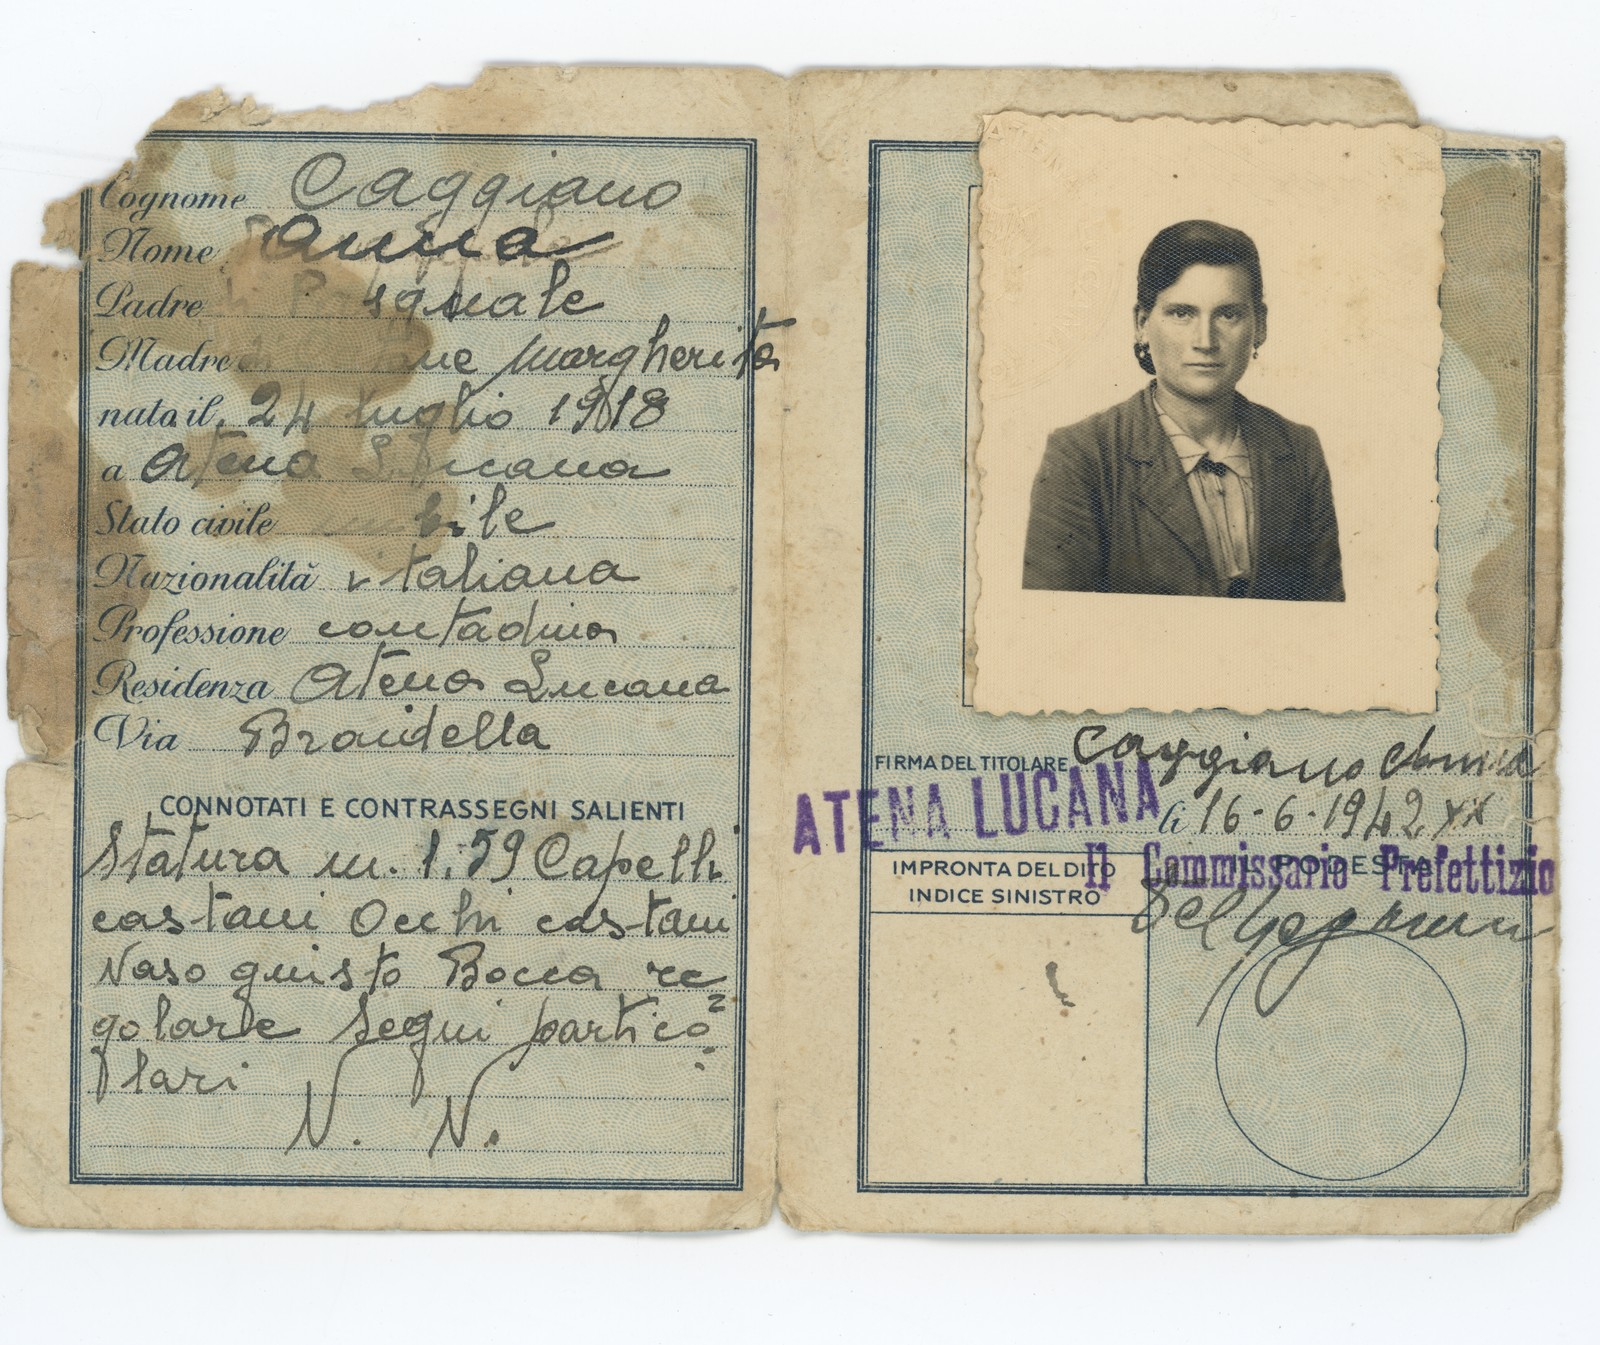 Cognome Caggiano
Nome Anna
Padre di Pasquale
Madre Margherita
nata il 24 luglio 1918
a Atena Lucana
Stato civile
Nazionalità italiana
Professione contadina
Residenza Atena Lucana
Via Braidella
CONNOTATI E CONTRASSEGNI SALIENTI
Statura m. 1.59 Capelli
castani Occhi castani
Naso giusto Bocca re
golare Segni partico
lari
N. N.
FIRMA DEL TITOLARE Caggiano Anna
ATENA LUCANA li 16-6-1942 XX
IL PODESTÀ
Il Commissario Prefettizio
IMPRONTA DEL DITO
INDICE SINISTRO